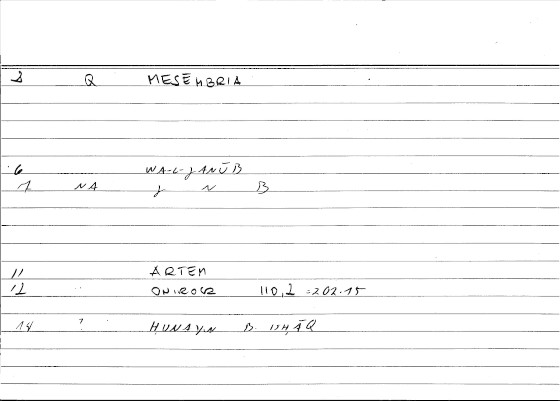 3 Q MESEMBRIA
6 WA-L-JANŪB
7 NA J N B
11 ARTEM
12 ONIROCR 110,2 =202.15
14 ? ḤUNAYN B. ISḤĀQ